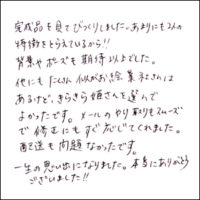 完成品を見てびっくりしました。あまりにも2人の
特徴をとらえているから!!
背景やポーズも期待以上でした。
他にもたくさん似がお絵業者さんは
あるけど、きらきら姫さんを選んで
よかったです。メールのやり取りもスムーズ
で修正にもすぐ応じてくれました。
配送も問題なかったです。
一生の思い出になりました。本当にありがとう
ございました!!